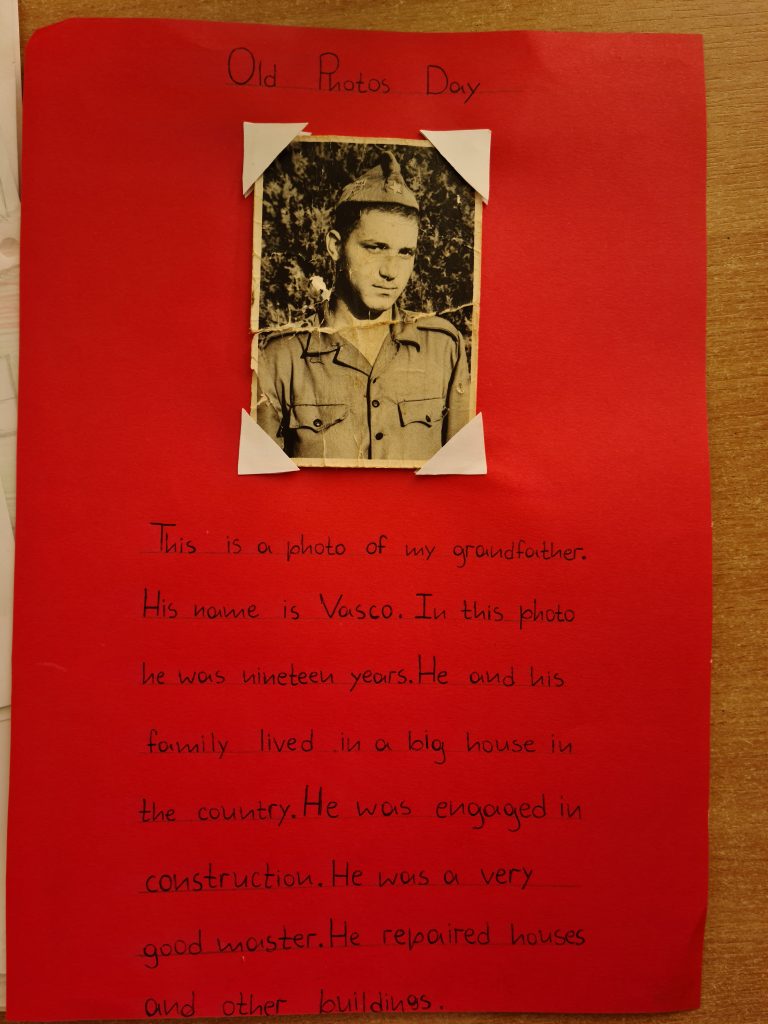 Old Photos Day
This is a photo of my grandfather.
His name is Vasco. In this photo
he was nineteen years. He and his
family lived in a big house in
the country. He was engaged in
construction. He was a very
good master. He repaired houses
and other buildings.